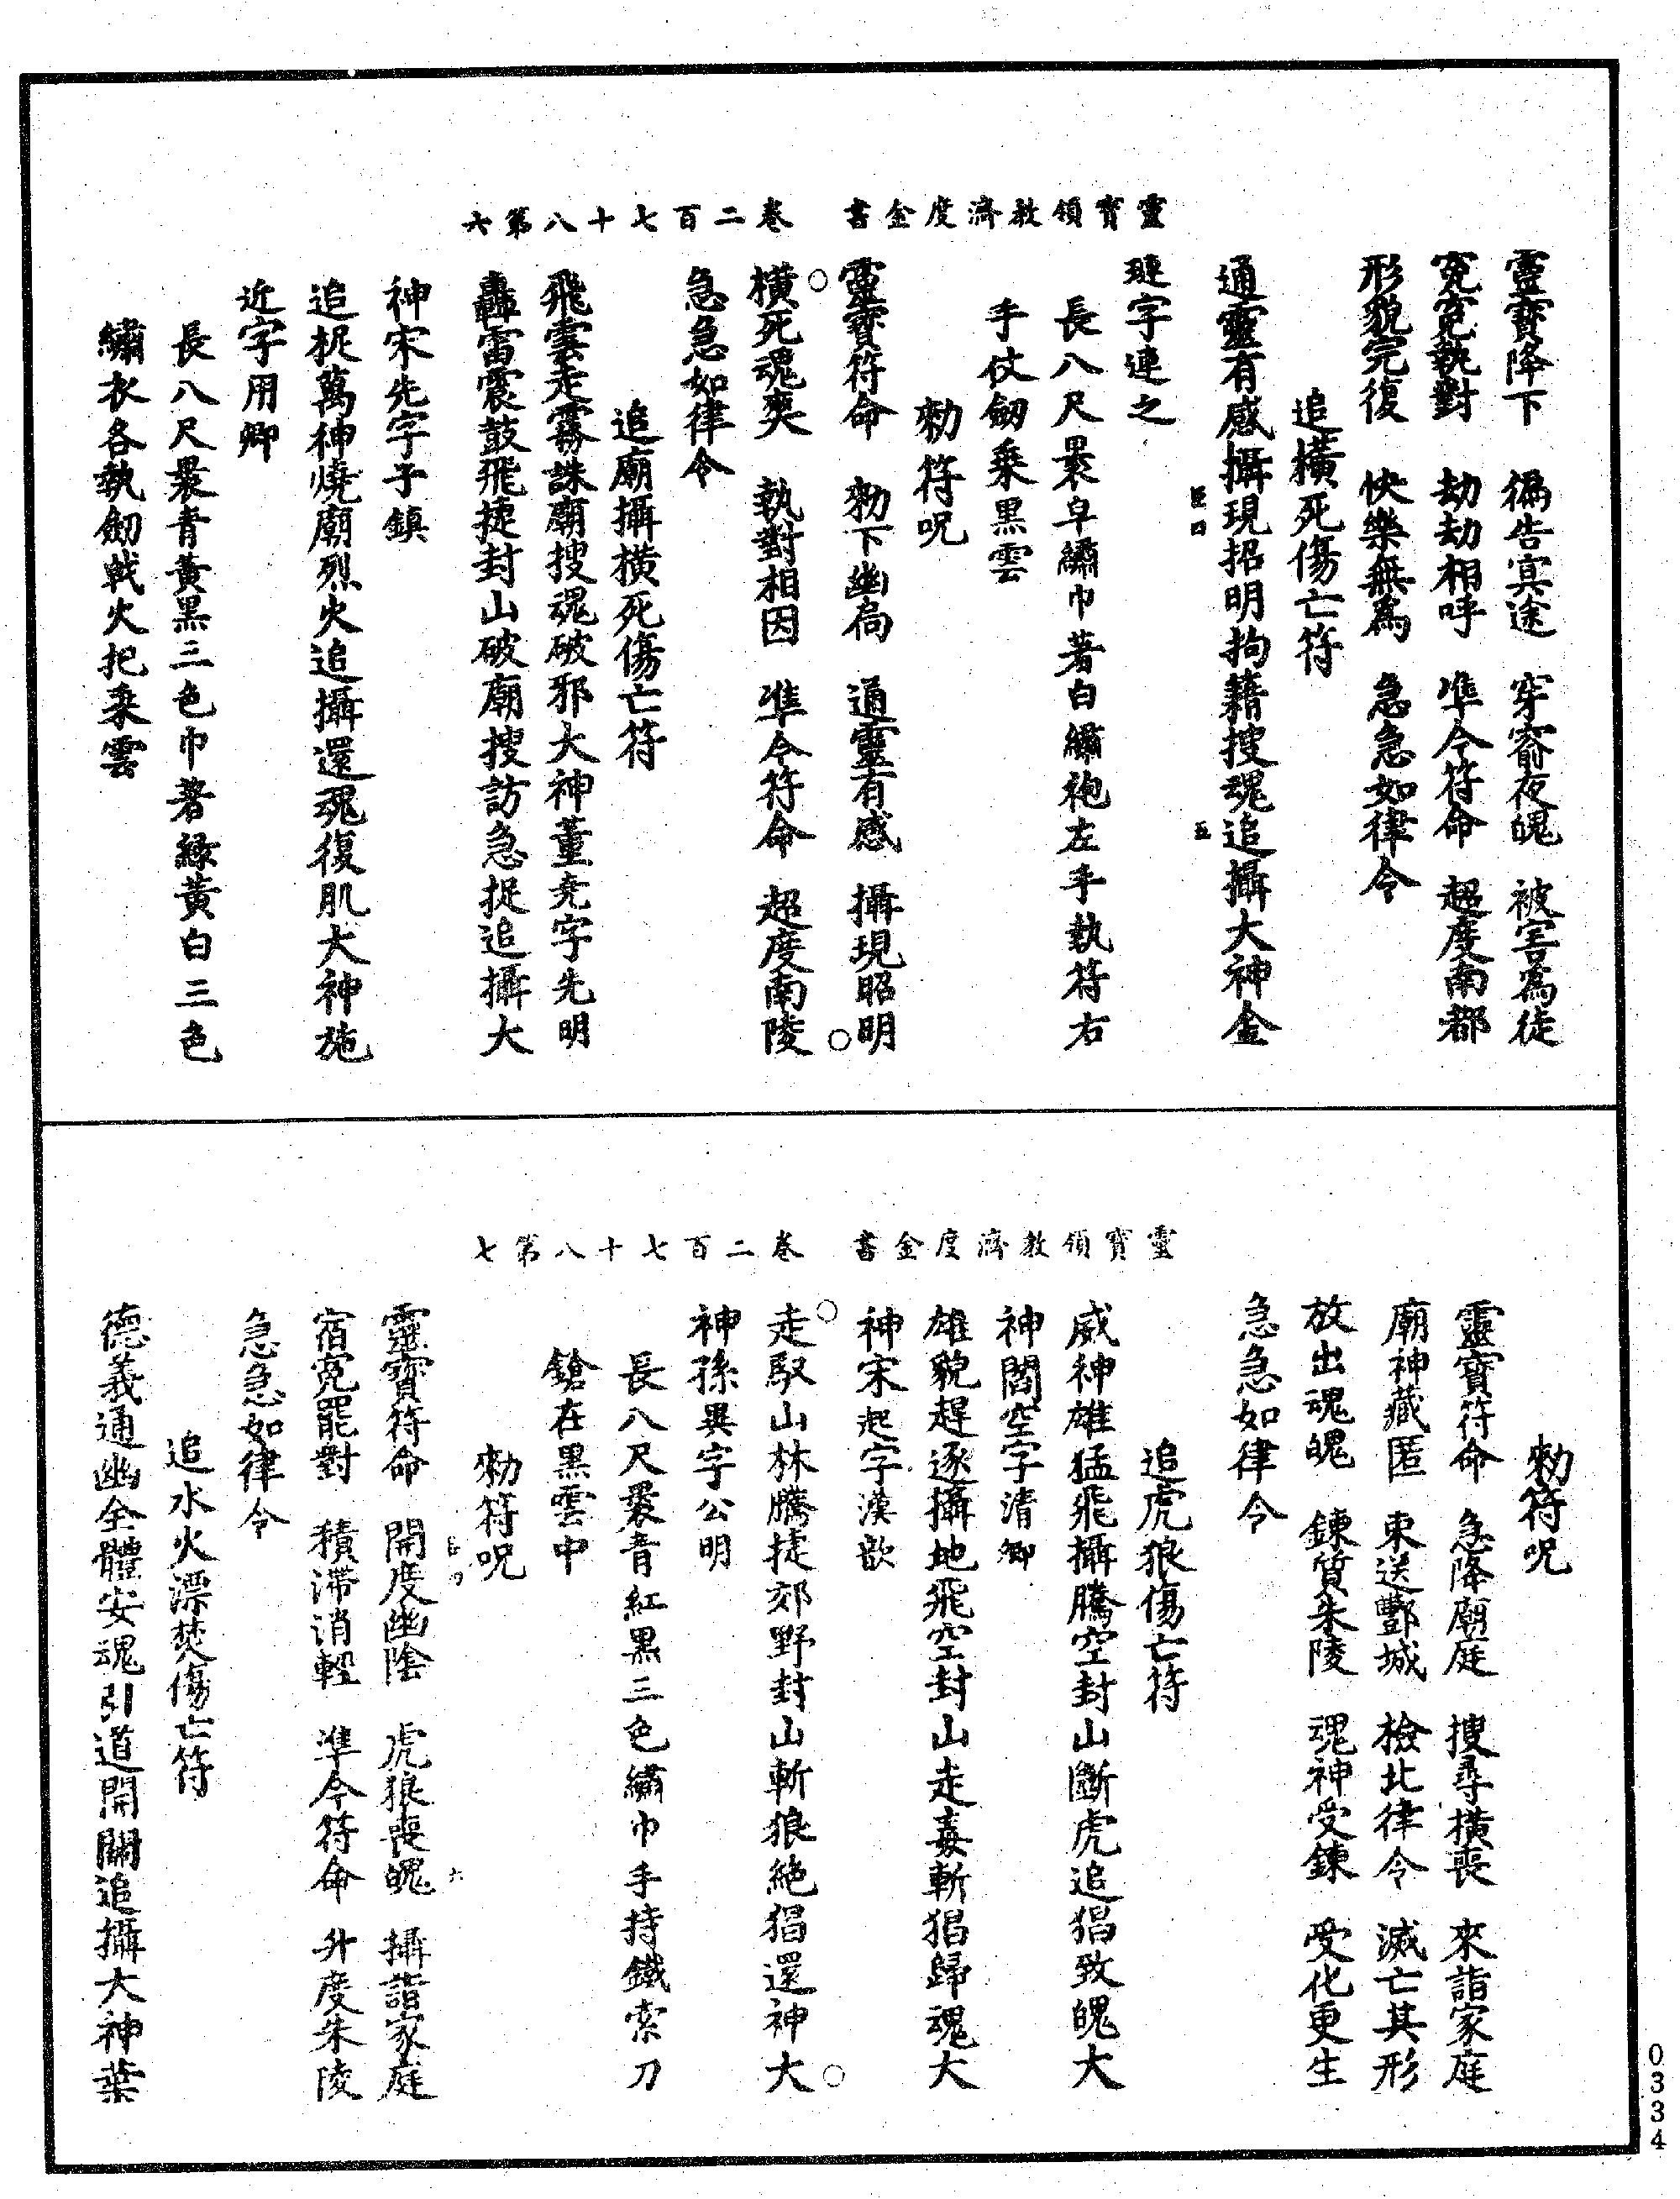 靈寶領教濟度金書　卷二百七十八第六
靈寶降下　徧告冥途　穿窬夜魄　被害為徒
冤冤執對　劫劫相呼　准今符命　超度南都
形貌完復　快樂無為　急急如律令
追橫死傷亡符
通靈有感攝現招明拘籍搜魂追攝大神金
璉字連之
長八尺裹皁繡巾著白繡袍左手執符右
手仗劒乗黑雲
勑符呪
靈寶符命　勑下幽扃　通靈有感　攝現昭明
橫死魂爽　執對相因　准今符命　超度南陵
急急如律令
追廟攝橫死傷亡符
飛雲走霧誅廟搜魂破邪大神董尭字先明
轟雷震鼓飛捷封山破廟搜訪急捉追攝大
神宋先字子鎮
追捉萬神燒廟烈火追攝還魂復肌大神施
近字用卿
長八尺裹青黃黑三色巾著緑黃白三色
繡衣各執劒戟火把乗雲
靈寶領教濟度金書　卷二百七十八第七
勑符呪
靈寶符命　急降廟庭　搜尋橫喪　來詣家庭
廟神藏匿　束送酆城　檢北律令　滅亡其形
放出魂魄　鍊質朱陵　魂神受鍊　受化更生
急急如律令
追虎狼傷亡符
威神雄猛飛攝騰空封山斷虎追猖致魄大
神閻空字清卿
雄貌趕逐攝地飛空封山走毒斬猖歸魂大
神宋起字漢歆
走馭山林騰捷郊野封山斬狼絕猖還神大
神孫異字公明
長八尺裹青紅黑三色繡巾手持鐵索刀
鎗在黑雲中
勑符呪
靈寶符命　開度幽陰　虎狼喪魄　攝詣家庭
宿冤罷對　積滯消輕　准今符命　升度朱陵
急急如律令
追水火漂焚傷亡符
德義通幽全體安魂引道開關追攝大神葉
0334